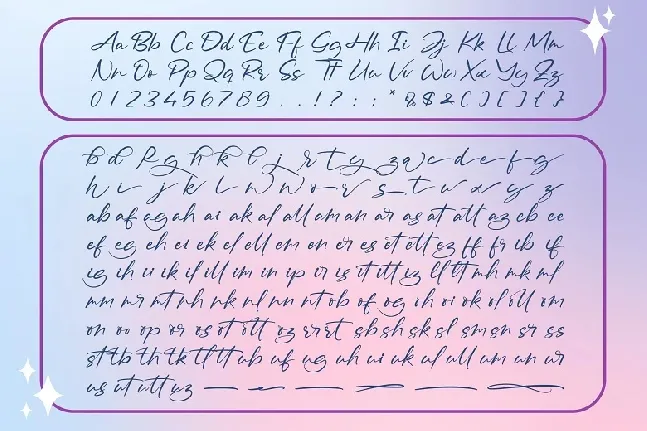 Aa Bb Cc Dd Ee Ff Gg Hh Ii Jj Kk Ll Mm
Nn Oo Pp Qq Rr Ss Tt Uu Vv Ww Xx Yy Zz
0 1 2 3 4 5 6 7 8 9 . , ! ? ; : " & $ & ( ) [ ] { }
b d f g h k l j r t y z a c d e f g
h i j k l n n o r s t v x y z
ab af ag ah ai ak al all am an ar as at att az eb ec
ef eg eh ei ek el ell em en er es et ett ez ff fr ib if
ig ih ii ik il ill im in ip ir is it itt iz ll tt mh mk ml
mm mr mt nh nk nl nn nt ob of og oh oi ok ol oll om
on oo op or os ot ott oz rr rt sb sh sk sl sm sn sr ss
st tb th tk tl tt ub uf ug uh ui uk ul ull um un ur
us ut utt uz